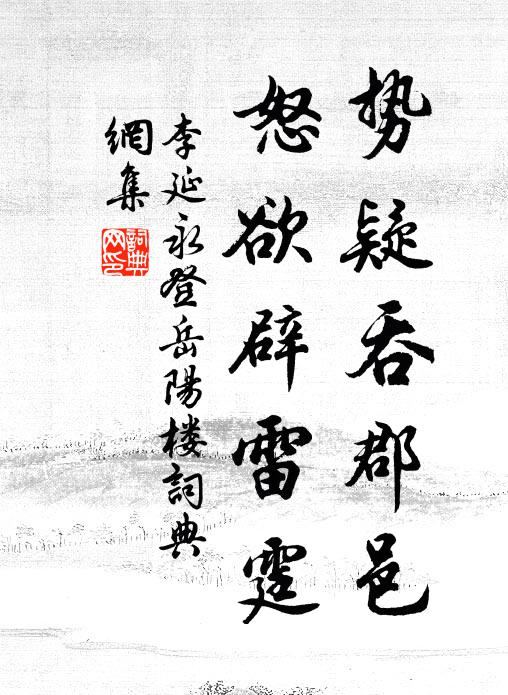 势疑吞郡邑
怒欲辟雷霆
李延永登岳陽楼詞典
網集
詞典
网印